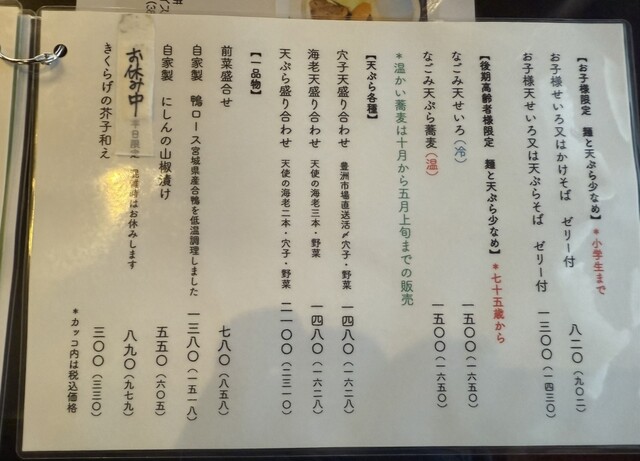 【お子様限定　麺と天ぷら少なめ】＊小学生まで
お子様せいろ又はかけそば　ゼリー付　八二〇（九〇二）
お子様天せいろ又は天ぷらそば　ゼリー付　一三〇〇（一四三〇）
【後期高齢者様限定　麺と天ぷら少なめ】＊七十五歳から
なごみ天せいろ（冷）　一五〇〇（一六五〇）
なごみ天ぷら蕎麦（温）　一五〇〇（一六五〇）
＊温かい蕎麦は十月から五月上旬までの販売
【天ぷら各種】
穴子天盛り合わせ　豊洲市場直送活〆穴子・野菜　一四八〇（一六二八）
海老天盛り合わせ　天使の海老三本・野菜　一四八〇（一六二八）
天ぷら盛り合わせ　天使の海老二本・穴子・野菜　二一〇〇（二三一〇）
【一品物】
前菜盛合せ　七八〇（八五八）
自家製　鴨ロース　宮城県産合鴨を低温調理しました　一三八〇（一五一八）
自家製　にしんの山椒漬け　五五〇（六〇五）
お休み中　平日限定　時はお休みします　八九〇（九七九）
きくらげの芥子和え　三〇〇（三三〇）
＊カッコ内は税込価格